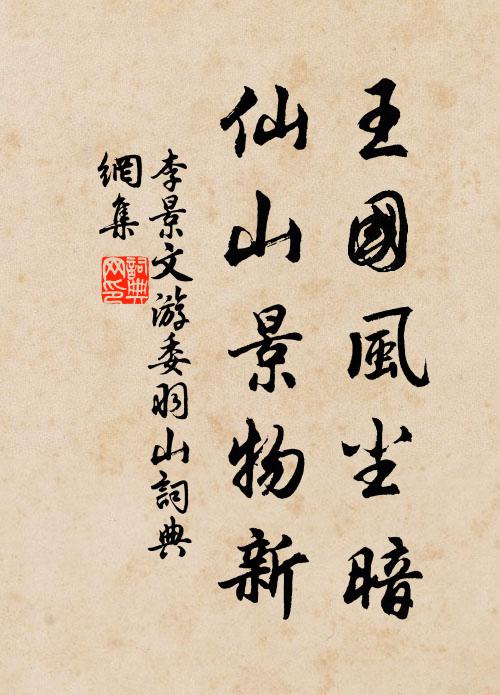 王國風尘暗
仙山景物新
李景文游委羽山詞典
網集
詞典
网印